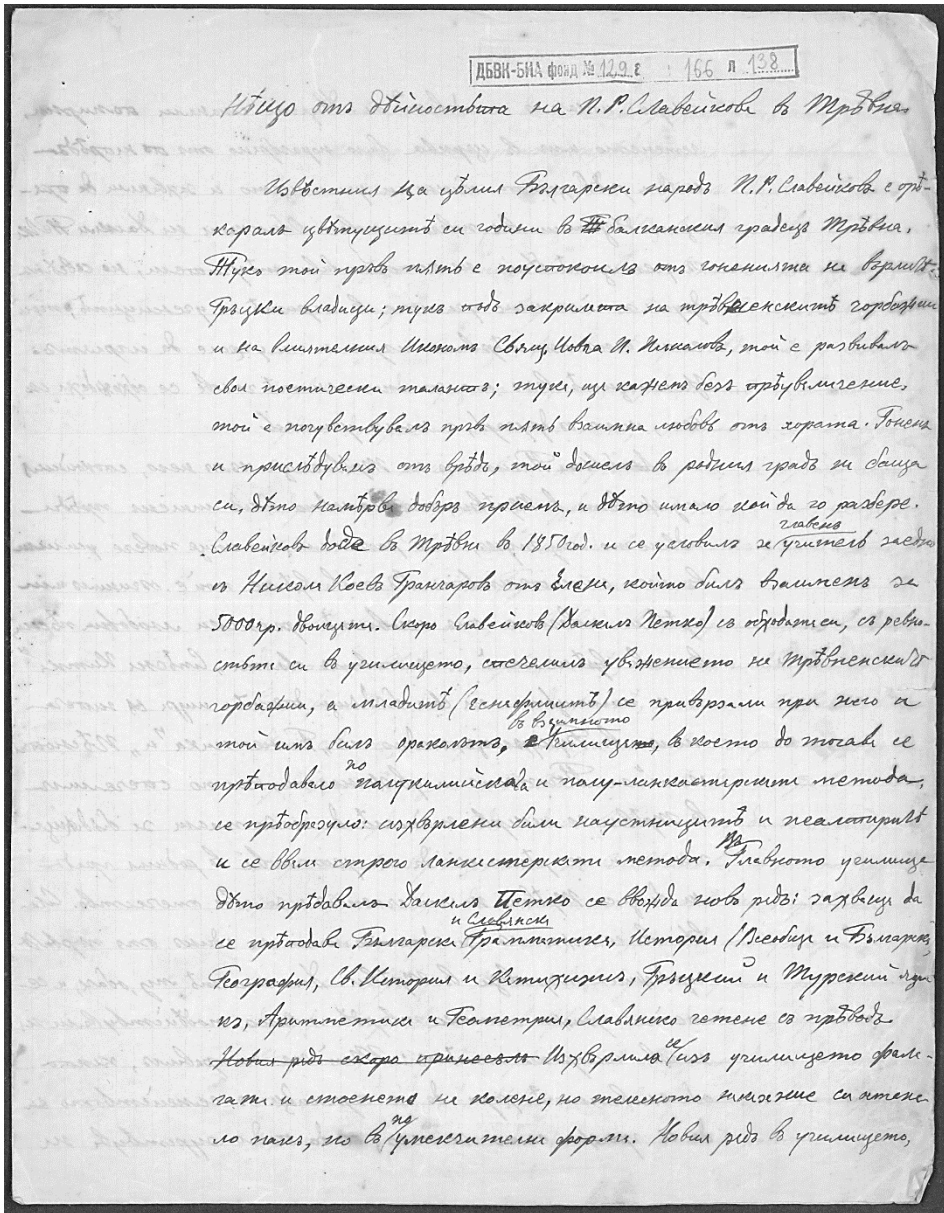 ДБВК-БИА фонд № 129 г 166 л 138
Нѣщо отъ дѣйностьта на П. Р. Славейкова въ Трѣвна
Извѣстния на цѣлия Български народъ П. Р. Славейковъ е прѣ-
каралъ цвѣтущитѣ си години въ балканския градецъ Трѣвна.
Тукъ той пръвъ пѫть е поуспокоилъ отъ гоненията на върлитѣ
Гръцки владици; тукъ подъ закрилата на трѣвненскитѣ чорбаджии
и на влиятелния Икономъ Свящ. Йовча П. Николовъ, той е развивалъ
своя поетически талантъ; тука, ще кажемъ безъ прѣувеличение,
той е почувствувалъ пръвъ пѫть взаимна любовь отъ хората. Гоненъ
и прислѣдуванъ отъ врѣдъ, той дошелъ въ родния градъ на баща
си, дѣто намѣрва добъръ приемъ, и дѣто имало кой да го разбере.
Славейковъ дойде въ Трѣвна въ 1850 год. и се условилъ за главенъ учитель заедно
съ Никола Коевъ Гранчаровъ отъ Елена, който билъ взаименъ за
5000 гр. двоицата. Скоро Славейковъ (Даскалъ Петко) съ обходата си, съ ревно-
стьта си въ училището, спечелилъ уважението на трѣвненскитѣ
чорбаджии, а младитѣ (генефлиитѣ) се привързали при него и
той имъ билъ оракулътъ, въ взаимното училище, въ което до тогава се
прѣподавало по полукилийската и полу-ланкастерската метода,
се прѣобразуло: изхвърлени били наустницитѣ и псалтиритѣ
и се ввела строго ланкастерската метода. Въ Главното училище
дѣто прѣдавалъ Даскалъ Петко се ввожда новъ редъ: захваща да
се прѣподава Българска и Славянска Грамматика, История (Всеобща и Българска)
География, Св. История и Катихизисъ, Гръцкий и Турский язи-
къ, Аритметика и Геометрия, Славянско четене съ прѣводъ
Новия редъ скоро принесълъ Изхвърлила се изъ училището фала-
гата и стоенето на колене, но телесното наказание си остана-
ло пакъ, но въ по умекчителни форми. Новия редъ въ училището,